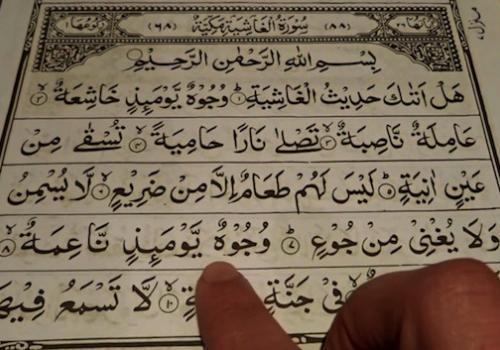 سُورَةُ الْغَاشِيَةِ مَكِّيَّةٌ (٨٨) (٦٨)
بِسْمِ اللّٰهِ الرَّحْمٰنِ الرَّحِيْمِ
هَلْ اَتٰىكَ حَدِيْثُ الْغَاشِيَةِ ١ وُجُوْهٌ يَّوْمَىِٕذٍ خَاشِعَةٌ ٢
عَامِلَةٌ نَّاصِبَةٌ ٣ تَصْلٰى نَارًا حَامِيَةً ٤ تُسْقٰى مِنْ
عَيْنٍ اٰنِيَةٍ ٥ لَيْسَ لَهُمْ طَعَامٌ اِلَّا مِنْ ضَرِيْعٍ ٦ لَّا يُسْمِنُ
وَلَا يُغْنِيْ مِنْ جُوْعٍ ٧ وُجُوْهٌ يَّوْمَىِٕذٍ نَّاعِمَةٌ ٨
فِيْ جَنَّةٍ ١٠ لَّا تَسْمَعُ فِيْهَا